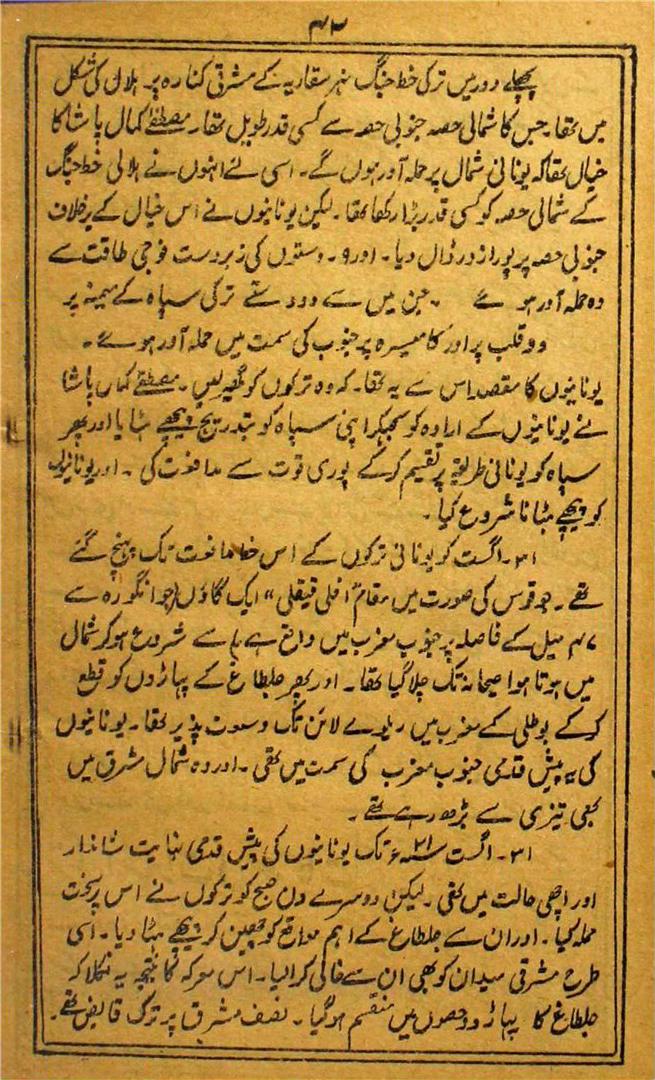 ۴۲
پچھلے دور میں ترکی خط جنگ نہر سقاریہ کے مشرقی کنارہ پر ہلال کی شکل
میں تھا۔ جس کا شمالی حصہ جنوبی حصہ سے کسی قدر طویل تھا۔ مصطفےٰ کمال پاشا کا
خیال تھا کہ یونانی شمال پر حملہ آور ہوں گے۔ اسی لئے انہوں نے ہلالی خط جنگ
کے شمالی حصہ کو کسی قدر بڑا رکھا تھا۔ لیکن یونانیوں نے اس خیال کے برخلاف
جنوبی حصہ پر پورا زور ڈال دیا۔ اور ۹۔ دستوں کی زبردست فوجی طاقت سے
وہ حملہ آور ہوئے ۔ جن میں سے دو دستے ترکی سپاہ کے میمنہ پر
دو قلب پر اور میسرہ پر جنوب کی سمت میں حملہ آور ہوئے۔
یونانیوں کا مقصد اس سے یہ تھا۔ کہ وہ ترکوں کو گھیر لیں۔ مصطفےٰ کمال پاشا
نے یونانیوں کے ارادہ کو سمجھکر اپنی سپاہ کو بتدریج پیچھے ہٹایا اور پھر
سپاہ کو یونانی طریقہ پر تقسیم کر کے پوری قوت سے مدافعت کی ۔ اور یونانیوں
کو پیچھے ہٹانا شروع کیا۔
۳۱۔ اگست کو یونانی ترکوں کے اس خط مدافعت تک پہنچ گئے
تھے۔ جو قوس کی صورت میں مقام " ایک گاؤں (جو انگورہ سے
۴۷ میل کے فاصلہ پر جنوب مغرب میں واقع ہے) سے شروع ہو کر شمال
میں ہوتا ہوا تک چلا گیا تھا۔ اور پھر چلطاغ کے پہاڑوں کو قطع
کر کے پوطلی کے مغرب میں ریلوے لائن تک وسعت پذیر تھا۔ یونانیوں
کی یہ پیش قدمی جنوب مغرب کی سمت میں تھی ۔ اور وہ شمال مشرق میں
بھی تیزی سے بڑھ رہے تھے ۔
۳۱۔ اگست سنہ ۲۱ء تک یونانیوں کی پیش قدمی نہایت شاندار
اور اچھی حالت میں تھی ۔ لیکن دوسرے دن صبح کو ترکوں نے اس پر سخت
حملہ کیا۔ اور ان سے چلطاغ کے اہم مواقع کو چھین کر پیچھے ہٹا دیا۔ اسی
طرح مشرقی میدان کو بھی ان سے خالی کرا لیا۔ اس معرکہ کا نتیجہ یہ نکلا کہ
چلطاغ کا پہاڑ دو حصوں میں منقسم ہو گیا۔ نصف مشرق پر ترک قابض تھے۔